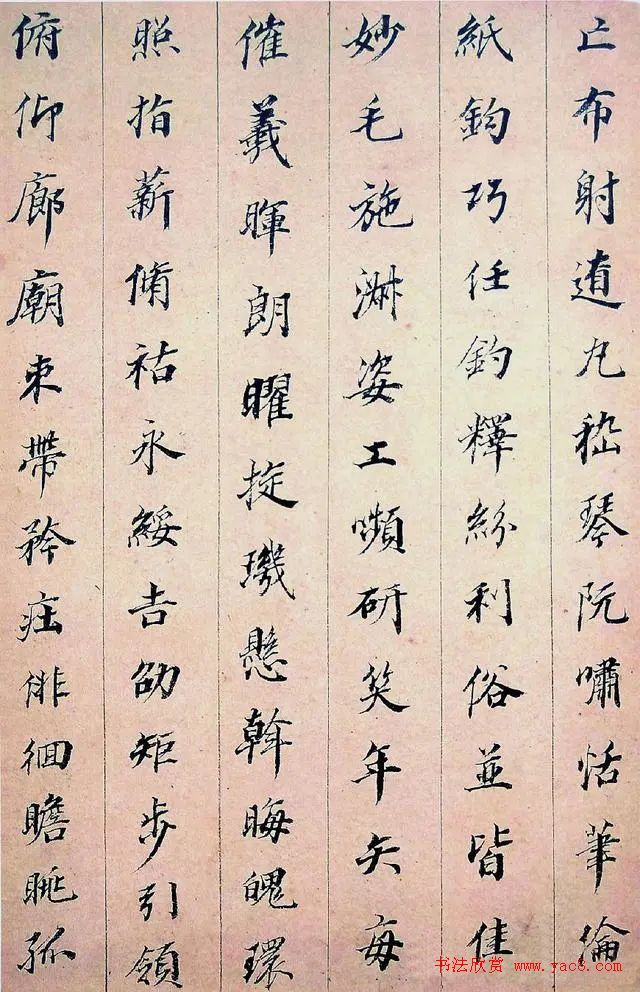 亡布射遼丸嵇琴阮嘯恬筆倫
紙鈞巧任釣釋紛利俗並皆佳
妙毛施淑姿工嚬研笑年矢每
催羲暉朗曜旋璣懸斡晦魄環
照指薪脩祜永綏吉劭矩步引領
俯仰廊廟束帶矜莊徘徊瞻眺孤
书法欣赏 www.yac8.com